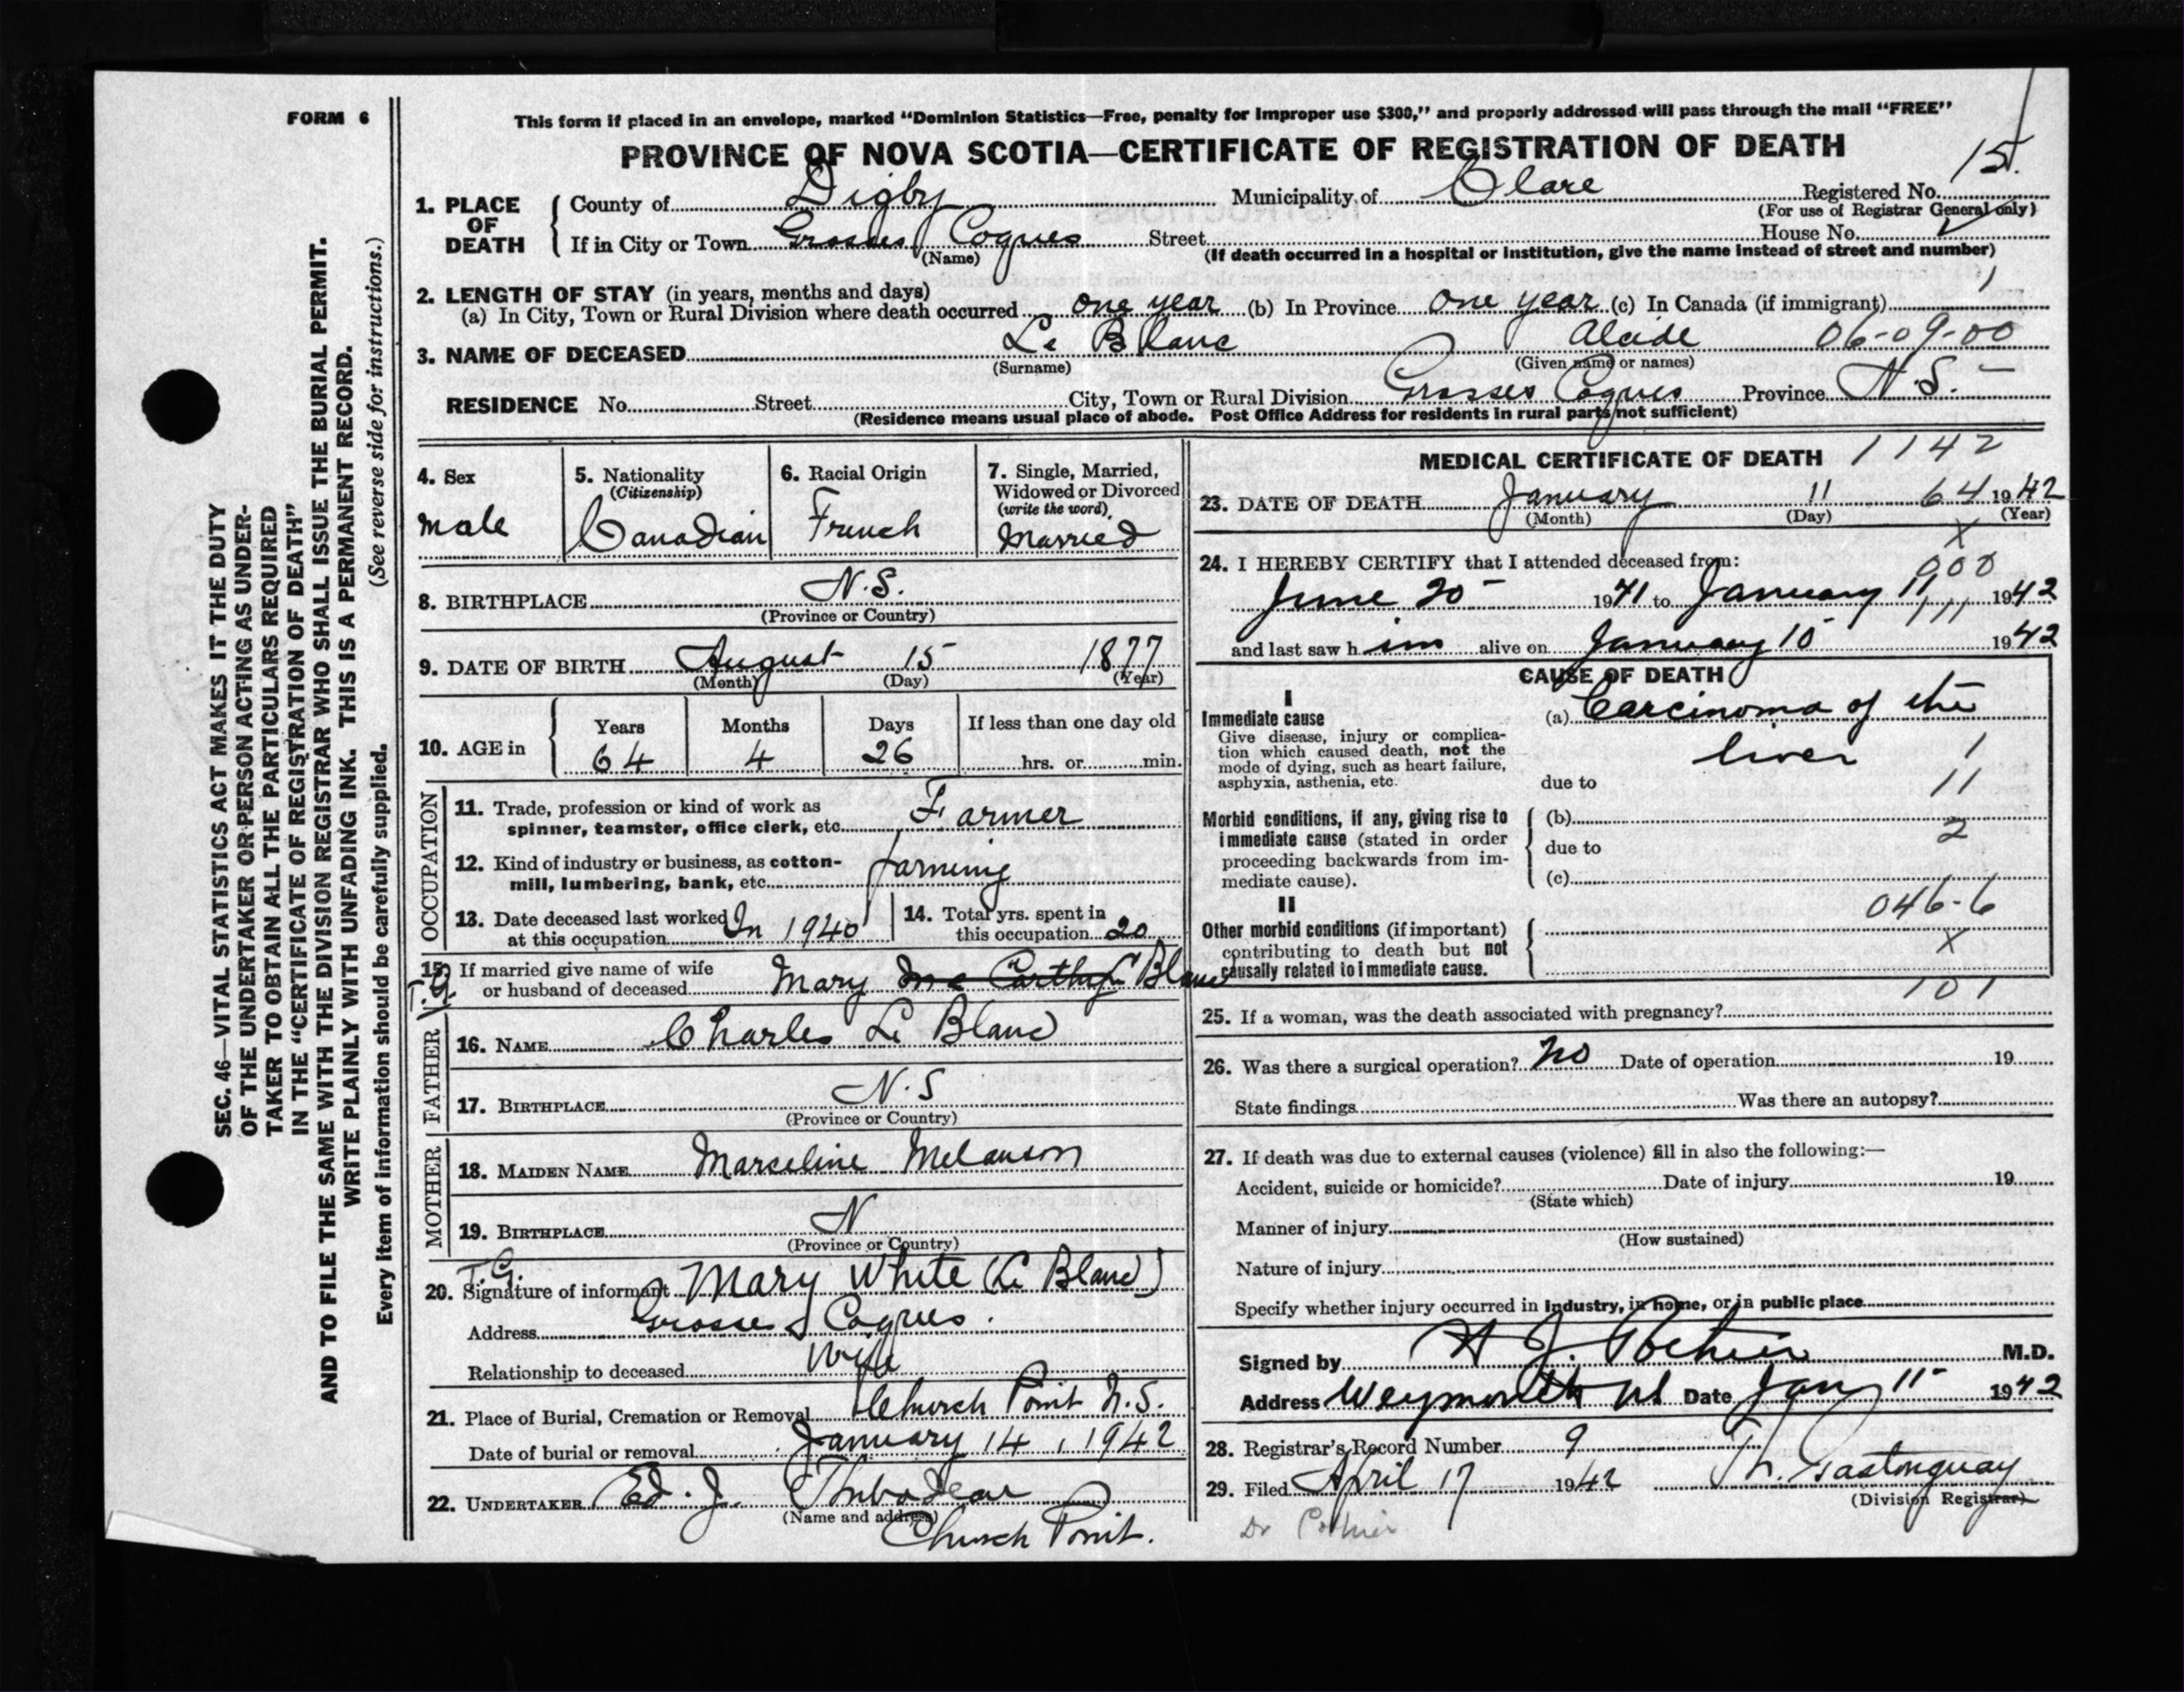 FORM 6
SEC. 46—VITAL STATISTICS ACT MAKES IT THE DUTY
OF THE UNDERTAKER OR PERSON ACTING AS UNDER-
TAKER TO OBTAIN ALL THE PARTICULARS REQUIRED
IN THE "CERTIFICATE OF REGISTRATION OF DEATH"
AND TO FILE THE SAME WITH THE DIVISION REGISTRAR WHO SHALL ISSUE THE BURIAL PERMIT.
WRITE PLAINLY WITH UNFADING INK. THIS IS A PERMANENT RECORD.
Every item of information should be carefully supplied. (See reverse side for instructions.)
This form if placed in an envelope, marked "Dominion Statistics—Free, penalty for improper use $300," and properly addressed will pass through the mail "FREE"
PROVINCE OF NOVA SCOTIA—CERTIFICATE OF REGISTRATION OF DEATH
1. PLACE OF DEATH
County of Digby Municipality of Clare Registered No. 15
(For use of Registrar General only)
If in City or Town Grosses Coques Street House No.
(Name) (If death occurred in a hospital or institution, give the name instead of street and number)
2. LENGTH OF STAY (in years, months and days) 1
(a) In City, Town or Rural Division where death occurred one year (b) In Province one year (c) In Canada (if immigrant)
3. NAME OF DECEASED Le Blanc Alcide 06-09-00
(Surname) (Given name or names)
RESIDENCE No. Street City, Town or Rural Division Grosses Coques Province N.S.
(Residence means usual place of abode. Post Office Address for residents in rural parts not sufficient)
4. Sex
male
5. Nationality
(Citizenship)
Canadian
6. Racial Origin
French
7. Single, Married,
Widowed or Divorced
(write the word)
Married
8. BIRTHPLACE N.S.
(Province or Country)
9. DATE OF BIRTH August 15 1877
(Month) (Day) (Year)
10. AGE in
Years Months Days If less than one day old
64 4 26 hrs. or min.
OCCUPATION
11. Trade, profession or kind of work as
spinner, teamster, office clerk, etc. Farmer
12. Kind of industry or business, as cotton-
mill, lumbering, bank, etc. farming
13. Date deceased last worked
at this occupation In 1940
14. Total yrs. spent in
this occupation 20
15. If married give name of wife
or husband of deceased Mary Mc Carthy Le Blanc
T.G.
FATHER
16. NAME Charles Le Blanc
17. BIRTHPLACE N.S
(Province or Country)
MOTHER
18. MAIDEN NAME Marceline Melanson
19. BIRTHPLACE N
(Province or Country)
T.G.
20. Signature of informant Mary White (Le Blanc)
Address Grosses Coques.
Relationship to deceased Wife
21. Place of Burial, Cremation or Removal Church Point N.S.
Date of burial or removal January 14, 1942
22. UNDERTAKER Ed. J. Thibodeau
(Name and address)
Church Point.
MEDICAL CERTIFICATE OF DEATH 1142
23. DATE OF DEATH January 11 64 1942
(Month) (Day) (Year)
X
24. I HEREBY CERTIFY that I attended deceased from:
000
June 20 1941 to January 11 1942
111
and last saw him alive on January 10 1942
CAUSE OF DEATH
I
Immediate cause
Give disease, injury or complica-
tion which caused death, not the
mode of dying, such as heart failure,
asphyxia, asthenia, etc.
(a) Carcinoma of the
liver 1
due to 11
Morbid conditions, if any, giving rise to
immediate cause (stated in order
proceeding backwards from im-
mediate cause).
(b)
due to 2
(c)
046-6
II
Other morbid conditions (if important)
contributing to death but not
causally related to immediate cause.
X
101
25. If a woman, was the death associated with pregnancy?
26. Was there a surgical operation? No Date of operation 19
State findings Was there an autopsy?
27. If death was due to external causes (violence) fill in also the following:—
Accident, suicide or homicide? Date of injury 19
(State which)
Manner of injury
(How sustained)
Nature of injury
Specify whether injury occurred in industry, in home, or in public place
Signed by H J. Pothier M.D.
Address Weymouth NS Date Jan 11 1942
28. Registrar's Record Number 9
29. Filed April 17 1942 Gastonguay
(Division Registrar)
Dr Pothier